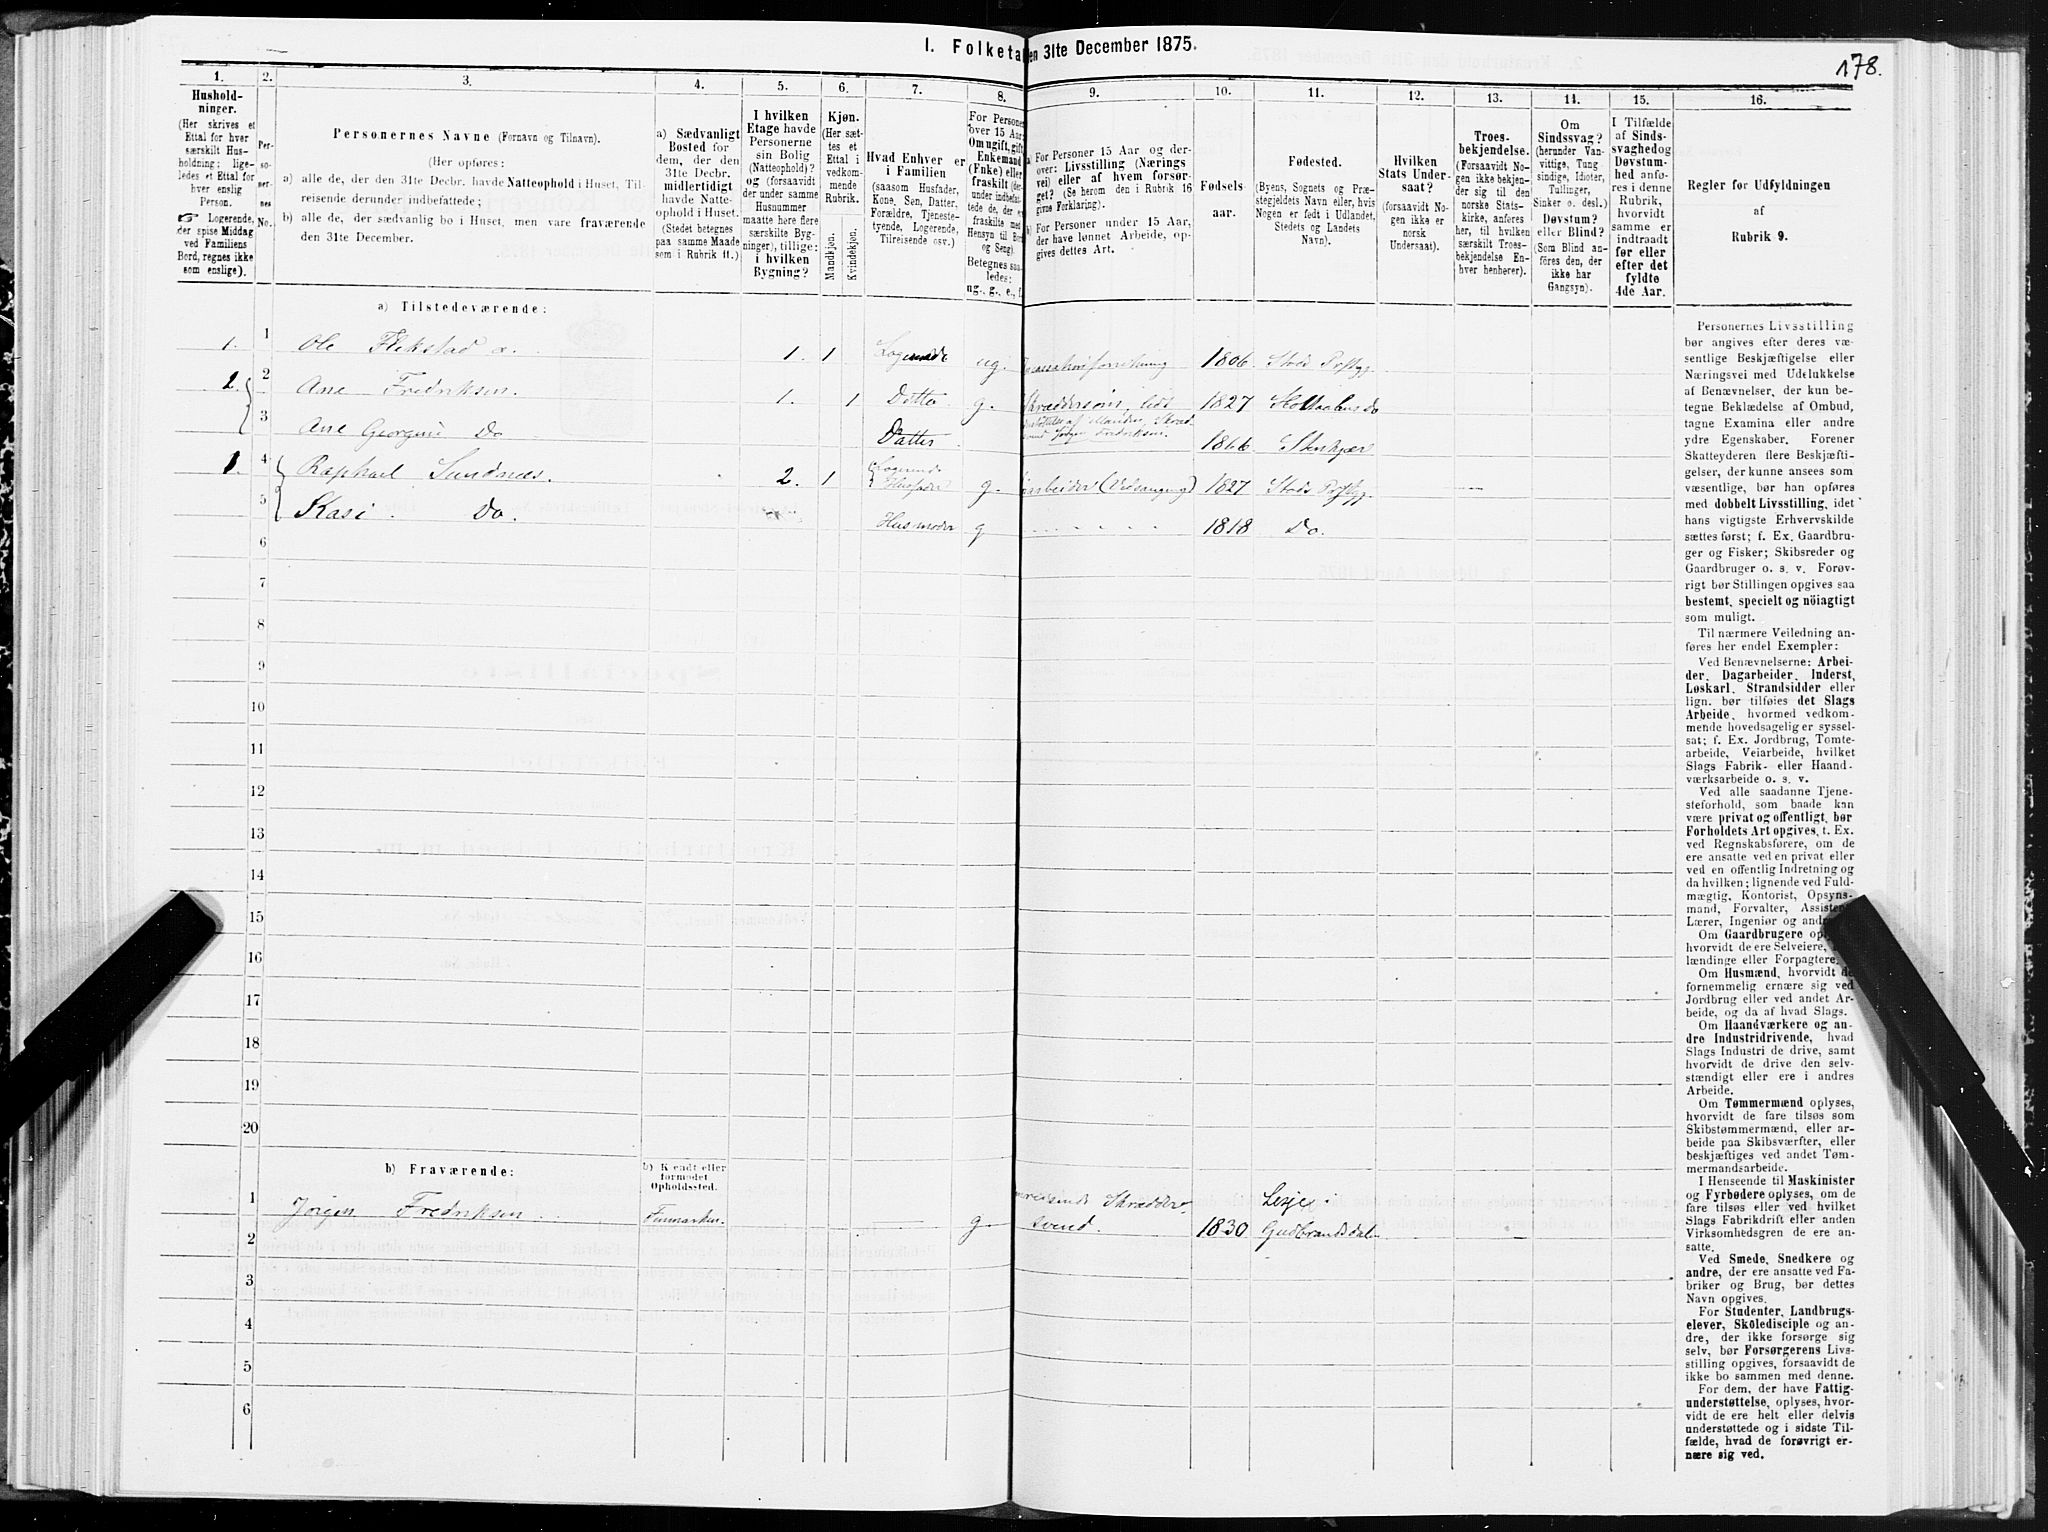 178.
I. Folketal den 31te December 1875.
1. 2. 3. 4. 5. 6. 7. 8. 9. 10. 11. 12. 13. 14. 15. 16.
Husholdninger.
(Her skrives et
Ettal for hver
særskilt Hus-
holdning; lige-
ledes et Ettal for
hver enslig
Person.
☞ Logerende,
der spise Middag
ved Familiens
Bord, regnes ikke
som enslige).
Per-
so-
ner-
nes
No.
Personernes Navne (Fornavn og Tilnavn).
(Her opføres:
a) alle de, der den 31te Decbr. havde Natteophold i Huset, Til-
reisende derunder indbefattede;
b) alle de, der sædvanlig bo i Huset, men vare fraværende
den 31te December.
a) Sædvanligt
Bosted for
dem, der den
31te Decbr.
midlertidigt
havde Natte-
ophold i Huset.
(Stedet betegnes
paa samme Maade
som i Rubrik 11.)
I hvilken
Etage havde
Personerne
sin Bolig
(Natteophold)?
og (forsaavidt
der under samme
Husnummer
maatte høre flere
særskilte Byg-
ninger), tillige:
i hvilken
Bygning?
Kjøn.
(Her sæt-
tes et
Ettal i
vedkom-
mende
Rubrik.
Mandkjøn.
Kvindekjøn.
Hvad Enhver er
i Familien
(saasom Husfader,
Kone, Søn, Datter,
Forældre, Tjeneste-
tyende, Logerende,
Tilreisende osv.)
For Personer
over 15 Aar:
Om ugift, gift,
Enkemand
(Enke) eller
fraskilt (der-
indbefat-
tede de, der ere
fraskilte med
Hensyn til Bord
og Seng).
Betegnes saa-
ledes:
ug., g., e., f.
a) For Personer 15 Aar og der-
over: Livsstilling (Nærings-
vei) eller af hvem forsør-
get? (Se herom den i Rubrik 16
givne Forklaring).
b) For Personer under 15 Aar,
der have lønnet Arbeide, op-
gives dettes Art.
Fødsels-
aar.
Fødested.
(Byens, Sognets og Præ-
stegjeldets Navn eller, hvis
Nogen er født i Udlandet,
Stedets og Landets
Navn).
Hvilken
Stats Under-
saat?
(forsaavidt No-
gen ikke er
norsk
Undersaat).
Troes-
bekjendelse.
(Forsaavidt No-
gen ikke bekjen-
der sig til den
norske Stats-
kirke, anføres
her, til hvilken
særskilt Troes-
bekjendelse En-
hver henhører).
Om
Sindssvag?
(herunder Van-
vittige, Tung-
sindige, Idioter,
Tullinger,
Sinker o. desl.)
Døvstum?
eller Blind?
(Som Blind an-
föres den, der
ikke har
Gangsyn).
I Tilfælde
af Sinds-
svaghed og
Døvstum-
hed anfø-
res i denne
Rubrik,
hvorvidt
samme er
indtraadt
før eller
efter det
fyldte
4de Aar.
Regler før Udfyldningen
af
Rubrik 9.
a) Tilstedeværende:
1. 1 Ole Flekstad 1. 1 Logerende ug. 1806. Stods Prstgj.
2 2 Ane Fredriksen 1. 1 Ditto g. 1827 Do
3 Ane Georgine Do Datter 1866 Stenkjær
1. 4 Raphael Sundnæs. 2. 1 Logerende Husfader g. arbeider (Vedsagning) 1827 Stods Prstgj.
5 Kasi Do. Husmoder g 1818 Do.
6
7
8
9
10
11
12
13
14
15
16
17
18
19
20
b) Fraværende:
b) Kjendt eller
formodet
Opholdssted.
1 Jørgen Fredriksen Finmarken. g. Skrædder-
svend. 1830 Lesje i
Gudbrandsdalen
2
3
4
5
6
Personernes Livsstilling
bør angives efter deres væ-
sentlige Beskjæftigelse eller
Næringsvei med Udelukkelse
af Benævnelser, der kun be-
tegne Beklædelse af Ombud,
tagne Examina eller andre
ydre Egenskaber. Forener
Skatteyderen flere Beskjæfti-
gelser, der kunne ansees som
væsentlige, bør han opføres
med dobbelt Livsstilling, idet
hans vigtigste Erhvervskilde
sættes først; f. Ex. Gaardbru-
ger og Fisker; Skibsreder og
Gaardbruger o. s. v. Forøv-
rigt bør Stillingen opgives saa
bestemt, specielt og nöiagtigt
som muligt.
Til nærmere Veiledning an-
føres her endel Exempler:
Ved Benævnelserne: Arbei-
der, Dagarbeider, Inderst,
Løskarl, Strandsidder eller
lign. bør tilføies det Slags
Arbeide, hvormed vedkom-
mende hovedsagelig er syssel-
sat; f. Ex. Jordbrug, Tomte-
arbeide, Veiarbeide, hvilket
Slags Fabrik- eller Haand-
værksarbeide o. s. v.
Ved alle saadanne Tjene-
steforhold, som baade kan
være privat og offentligt, bør
Forholdets Art opgives, t. Ex.
ved Regnskabsførere, om de
ere ansatte ved en privat eller
ved en offentlig Indretning og
da hvilken; lignende ved Fuld-
mægtig, Kontorist, Opsyns-
mand, Forvalter, Assistent,
Lærer, Ingeniør og andre.
Om Gaardbrugere oplyses,
hvorvidt de ere Selveiere, Lei-
lændinge eller Forpagtere.
Om Husmænd, hvorvidt de
fornemmelig ernære sig ved
Jordbrug eller ved andet Ar-
beide, og da af hvad Slags.
Om Haandværkere og an-
dre Industridrivende, hvad
Slags Industri de drive, samt
hvorvidt de drive den selv-
stændigt eller ere i andres
Arbeide.
Om Tømmermænd oplyses,
hvorvidt de fare tilsøs som
Skibstømmermænd, eller ar-
beide paa Skibsværfter, eller
beskjæftiges ved andet Tøm-
mermandsarbeide.
I Henseende til Maskinister
og Fyrbødere oplyses, om de
fare tilsøs eller ved hvilket
Slags Fabrikdrift eller anden
Virksomhedsgren de ere an-
satte.
Ved Smede, Snedkere og
andre, der ere ansatte ved Fa-
briker og Brug, bør dettes
Navn opgives.
For Studenter, Landbrugs-
elever, Skoledisciple og an-
dre, der ikke forsørge sig
selv, bør Forsørgerens Livs-
stilling opgives, forsaavidt de
ikke bo sammen med denne.
For dem, der have Fattig-
understøttelse, oplyses, hvor-
vidt de ere helt eller delvis
understøttede og i sidste Til-
fælde, hvad de forøvrigt er-
nære sig ved.